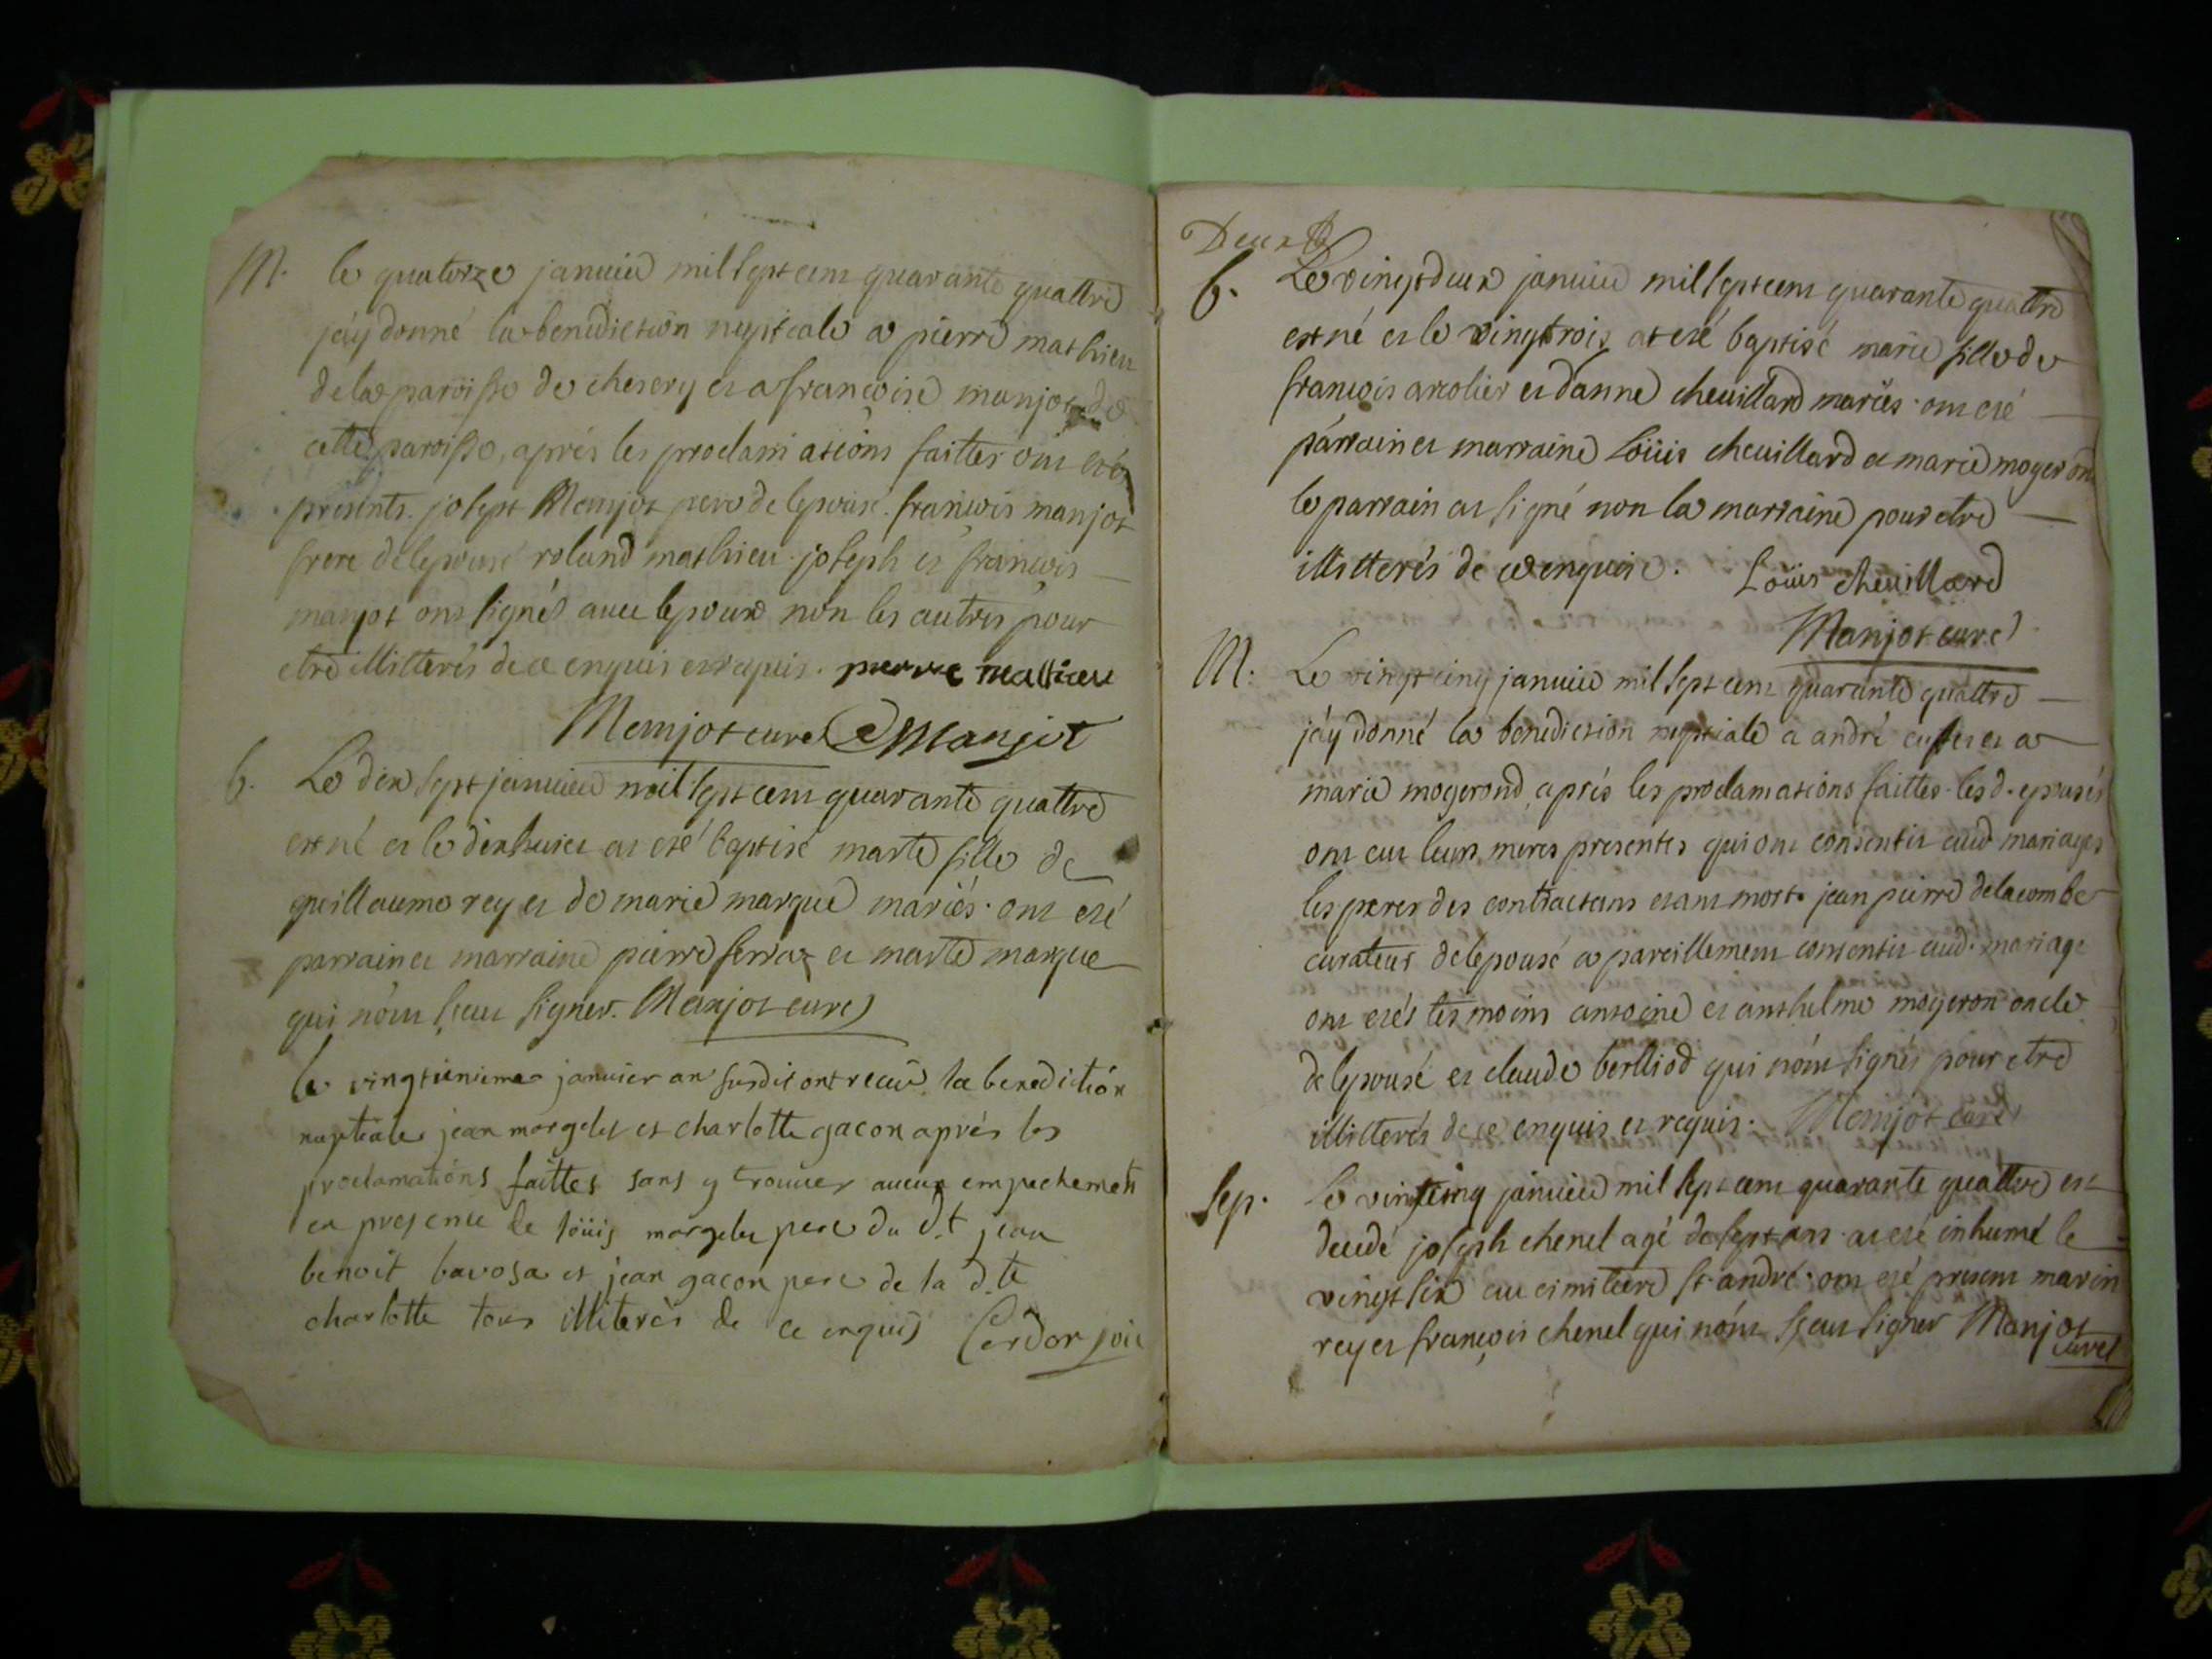 M. le quatorze janvier mil sept cent quarante quattre
jáy donné la benediction nuptiale a pierre mathieu
de la paroisse de chesery et a francoise manjot de
cette paroisse, aprés les proclamations faittes ont eté
presents joseph Manjot pere de lepouse. francois manjot
frere de lepouse roland mathieu joseph et francois
manjot ont signés avec lepoux non les autres pour
etre illitterés de ce enquis et requis. pierre mathieu
Manjot curé Manjot
b. Le dix sept janvier mil sept cent quarante quattre
est né et le dix huict at eté baptisé marte fille de
guillaume rey et de marie marque mariés. ont eté
parrain et marraine pierre ferraz et marte marque
qui nònt sceu signer. Manjot curé
le vingtunieme janvier an susdit ont recu la benediction
nuptiale jean morgelet et charlotte gacon aprés les
proclamations faittes sans y trouver aucun empechement
en presence de loüis morgelet pere du d.t jean
benoit bavosa et jean gacon pere de la d.te
charlotte tous illiterés de ce enquis Cerdon vic
Deux
b. Le vingtdeux janvier mil sept cent quarante quattre
est né et le vingtrois at eté baptisé marie fille de
francois arcolier et danne chevillard mariés. ont eté
párrain et marraine Loüis chevillard et marie mogeron
le parrain at signé non la marraine pour etre
illitterés de ce enquise. Loüis chevillard
Manjot curé
M. Le vingt cinq janvier mil sept cent quarante quattre
jáy donné la benediction nuptiale a andré et a
marie mogerond, aprés les proclamations faittes les d. epousés
ont eut leurs meres presentes qui ont consentit aud mariages
les peres des contractans etant morts jean pierre delacombe
curateur de lepouse a pareillement consentit aud. mariage
ont etés tesmoins antoine et anthelme mogeron oncle
de lepouse et claude berlliod qui nónt signés pour etre
illitterés de ce enquis et requis. Manjot curé
Sep. le vintcinq janvier mil sept cent quarante quattre est
decedé joseph chenel agé de sept ans at eté inhumé le
vingt six au cimitiere st andré. ont eté present marin
rey et françois chenel qui nónt sceu signer Manjot
curé